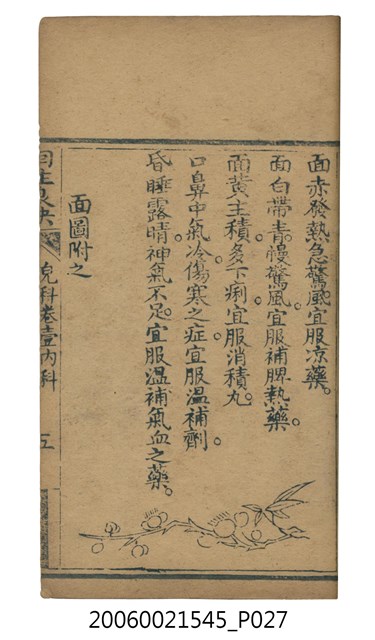 面赤發熱急驚風宜服凉藥。
面白帶青慢驚風宜服補脾熱藥。
面黃主積多下痢宜服消積丸。
口鼻中氣冷傷寒之症宜服溫補劑。
昏睡露睛神氣不足。宜服溫補氣血之藥。
面圖附之
兒科卷壹內科 五
20060021545_P027